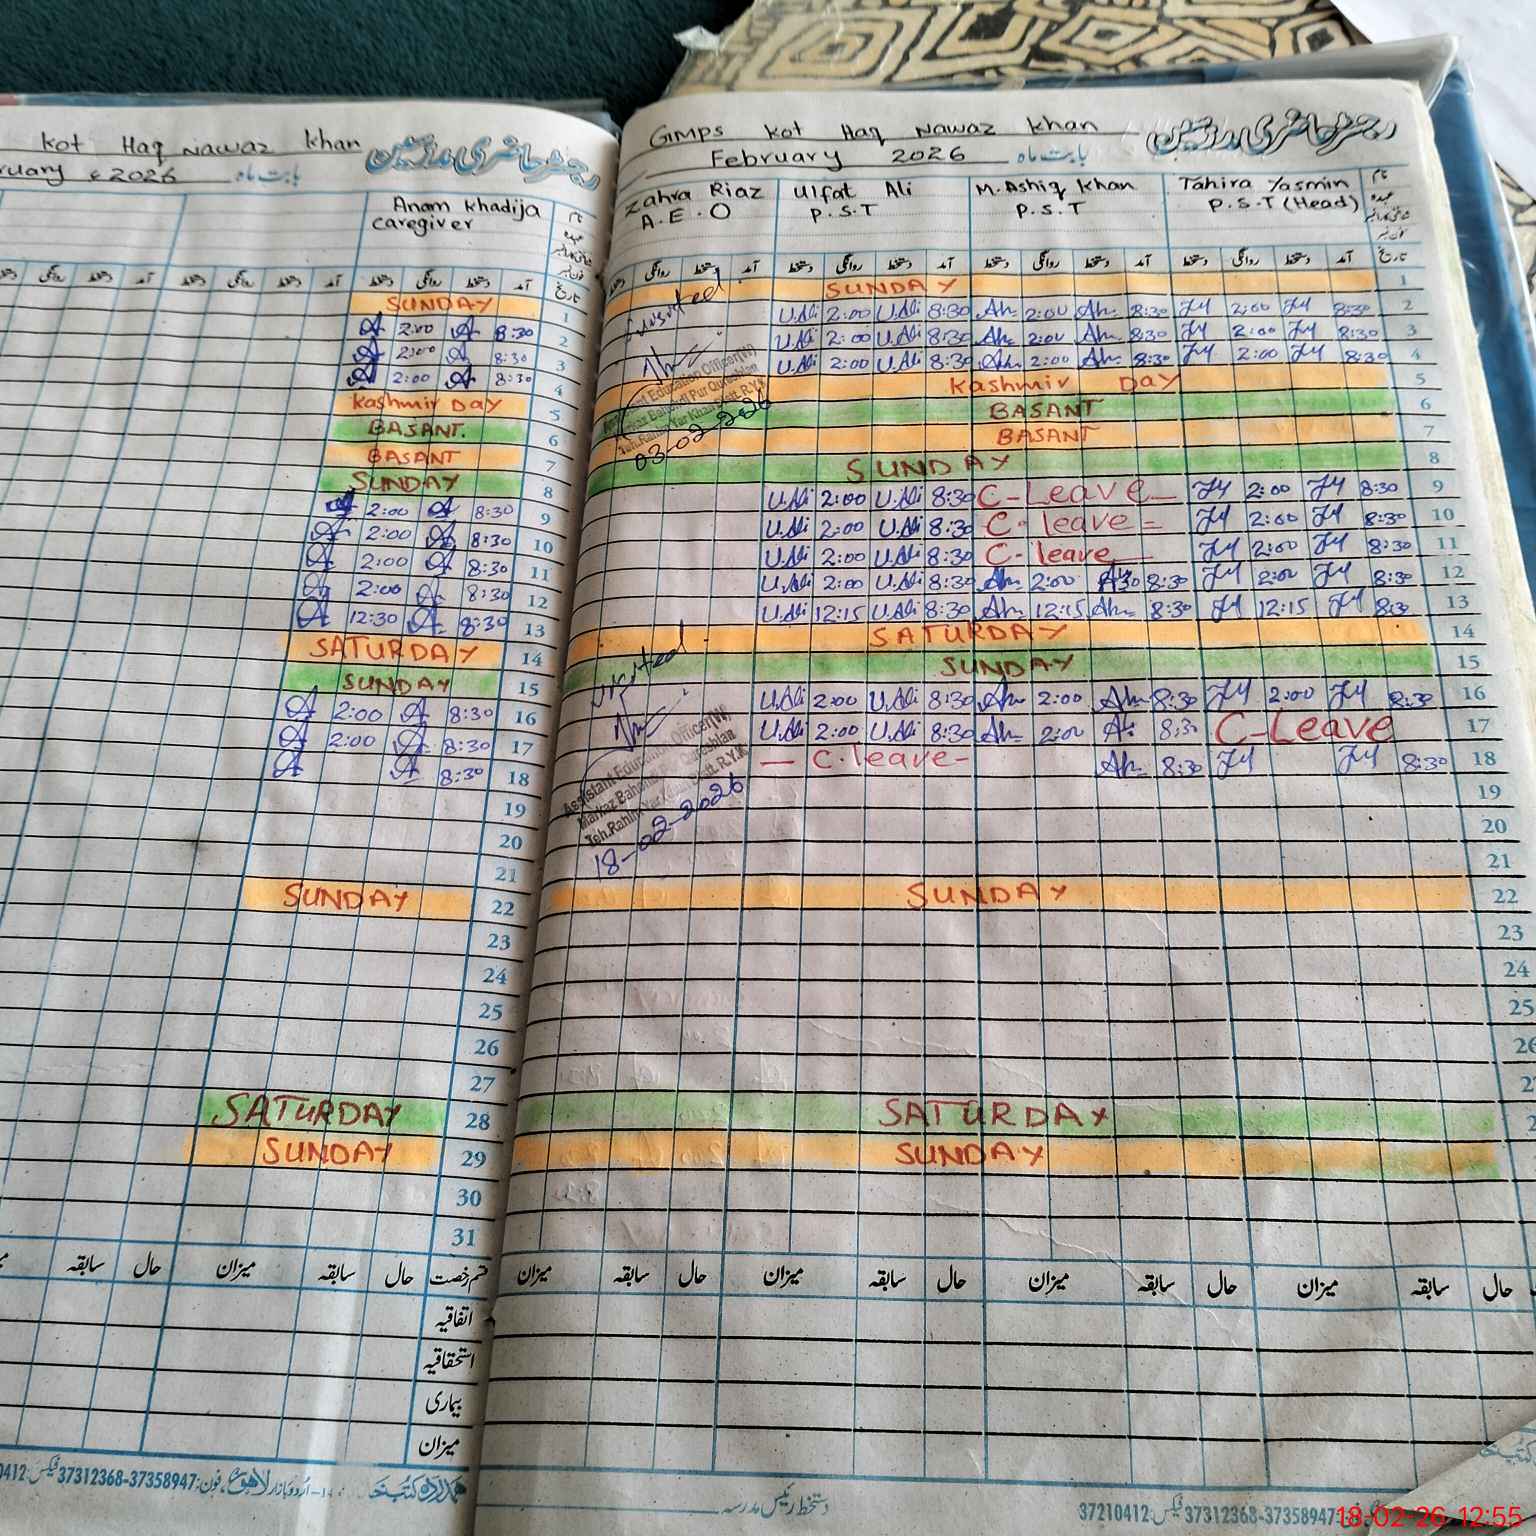 Kot Haq Nawaz Khan رجسٹر حاضری مدرسین
ruary 2026 بابت ماہ
Anam Khadija
Caregiver
نام
عہدہ
آمد دستخط روانگی دستخط
تاریخ
SUNDAY 1
2:00 8:30 2
2:00 8:30 3
2:00 8:30 4
Kashmir DAY 5
BASANT. 6
BASANT 7
SUNDAY 8
2:00 8:30 9
2:00 8:30 10
2:00 8:30 11
2:00 8:30 12
12:30 8:30 13
SATURDAY 14
SUNDAY 15
2:00 8:30 16
2:00 8:30 17
8:30 18
19
20
21
SUNDAY 22
23
24
25
26
27
SATURDAY 28
SUNDAY 29
30
31
قسم رخصت حال سابقہ میزان حال سابقہ
اتفاقیہ
استحقاقیہ
بیماری
میزان
اُردو بازار لاہور، فون: 37358947-37312368 فیکس:
GMPS Kot Haq Nawaz Khan رجسٹر حاضری مدرسین
February 2026 بابت ماہ
Zahra Riaz Ulfat Ali M. Ashiq Khan Tahira Yasmin نام
A.E.O P.S.T P.S.T P.S.T (Head) عہدہ
آمد دستخط روانگی دستخط آمد دستخط روانگی دستخط آمد دستخط روانگی دستخط آمد دستخط روانگی تاریخ
SUNDAY 1
U.Ali 2:00 U.Ali 8:30 2:00 8:30 2:00 8:30 2
U.Ali 2:00 U.Ali 8:30 2:00 8:30 2:00 8:30 3
U.Ali 2:00 U.Ali 8:30 2:00 8:30 2:00 8:30 4
Kashmir DAY 5
BASANT 6
BASANT 7
SUNDAY 8
Assistant Education Officer(W)
03-02-2026
U.Ali 2:00 U.Ali 8:30 C-Leave 2:00 8:30 9
U.Ali 2:00 U.Ali 8:30 C-leave 2:00 8:30 10
U.Ali 2:00 U.Ali 8:30 C-leave 2:00 8:30 11
U.Ali 2:00 U.Ali 8:30 2:00 8:30 2:00 8:30 12
U.Ali 12:15 U.Ali 8:30 12:15 8:30 12:15 8:30 13
SATURDAY 14
SUNDAY 15
U.Ali 2:00 U.Ali 8:30 2:00 8:30 2:00 8:30 16
U.Ali 2:00 U.Ali 8:30 2:00 8:30 C-Leave 17
C.leave 8:30 8:30 18
Assistant Education Officer(W)
18-02-2026
19
20
21
SUNDAY 22
23
24
25
26
2
SATURDAY 2
SUNDAY
حال سابقہ میزان حال سابقہ میزان حال سابقہ میزان حال سابقہ میزان
دستخط رئیس مدرسہ
37358947-37312368 فیکس: 37210412
18-02-26 12:55